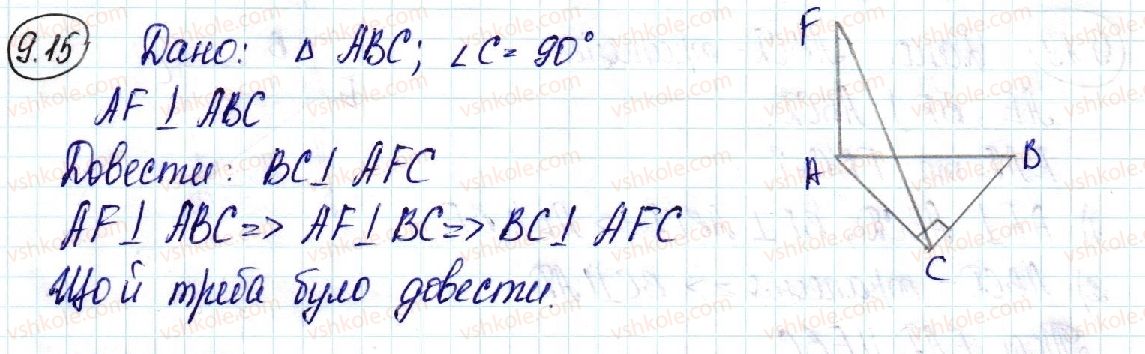 9.15 Дано: △ ABC; ∠C = 90°
AF ⊥ ABC
Довести: BC ⊥ AFC
AF ⊥ ABC => AF ⊥ BC => BC ⊥ AFC
Що й треба було довести.
F
A
B
C